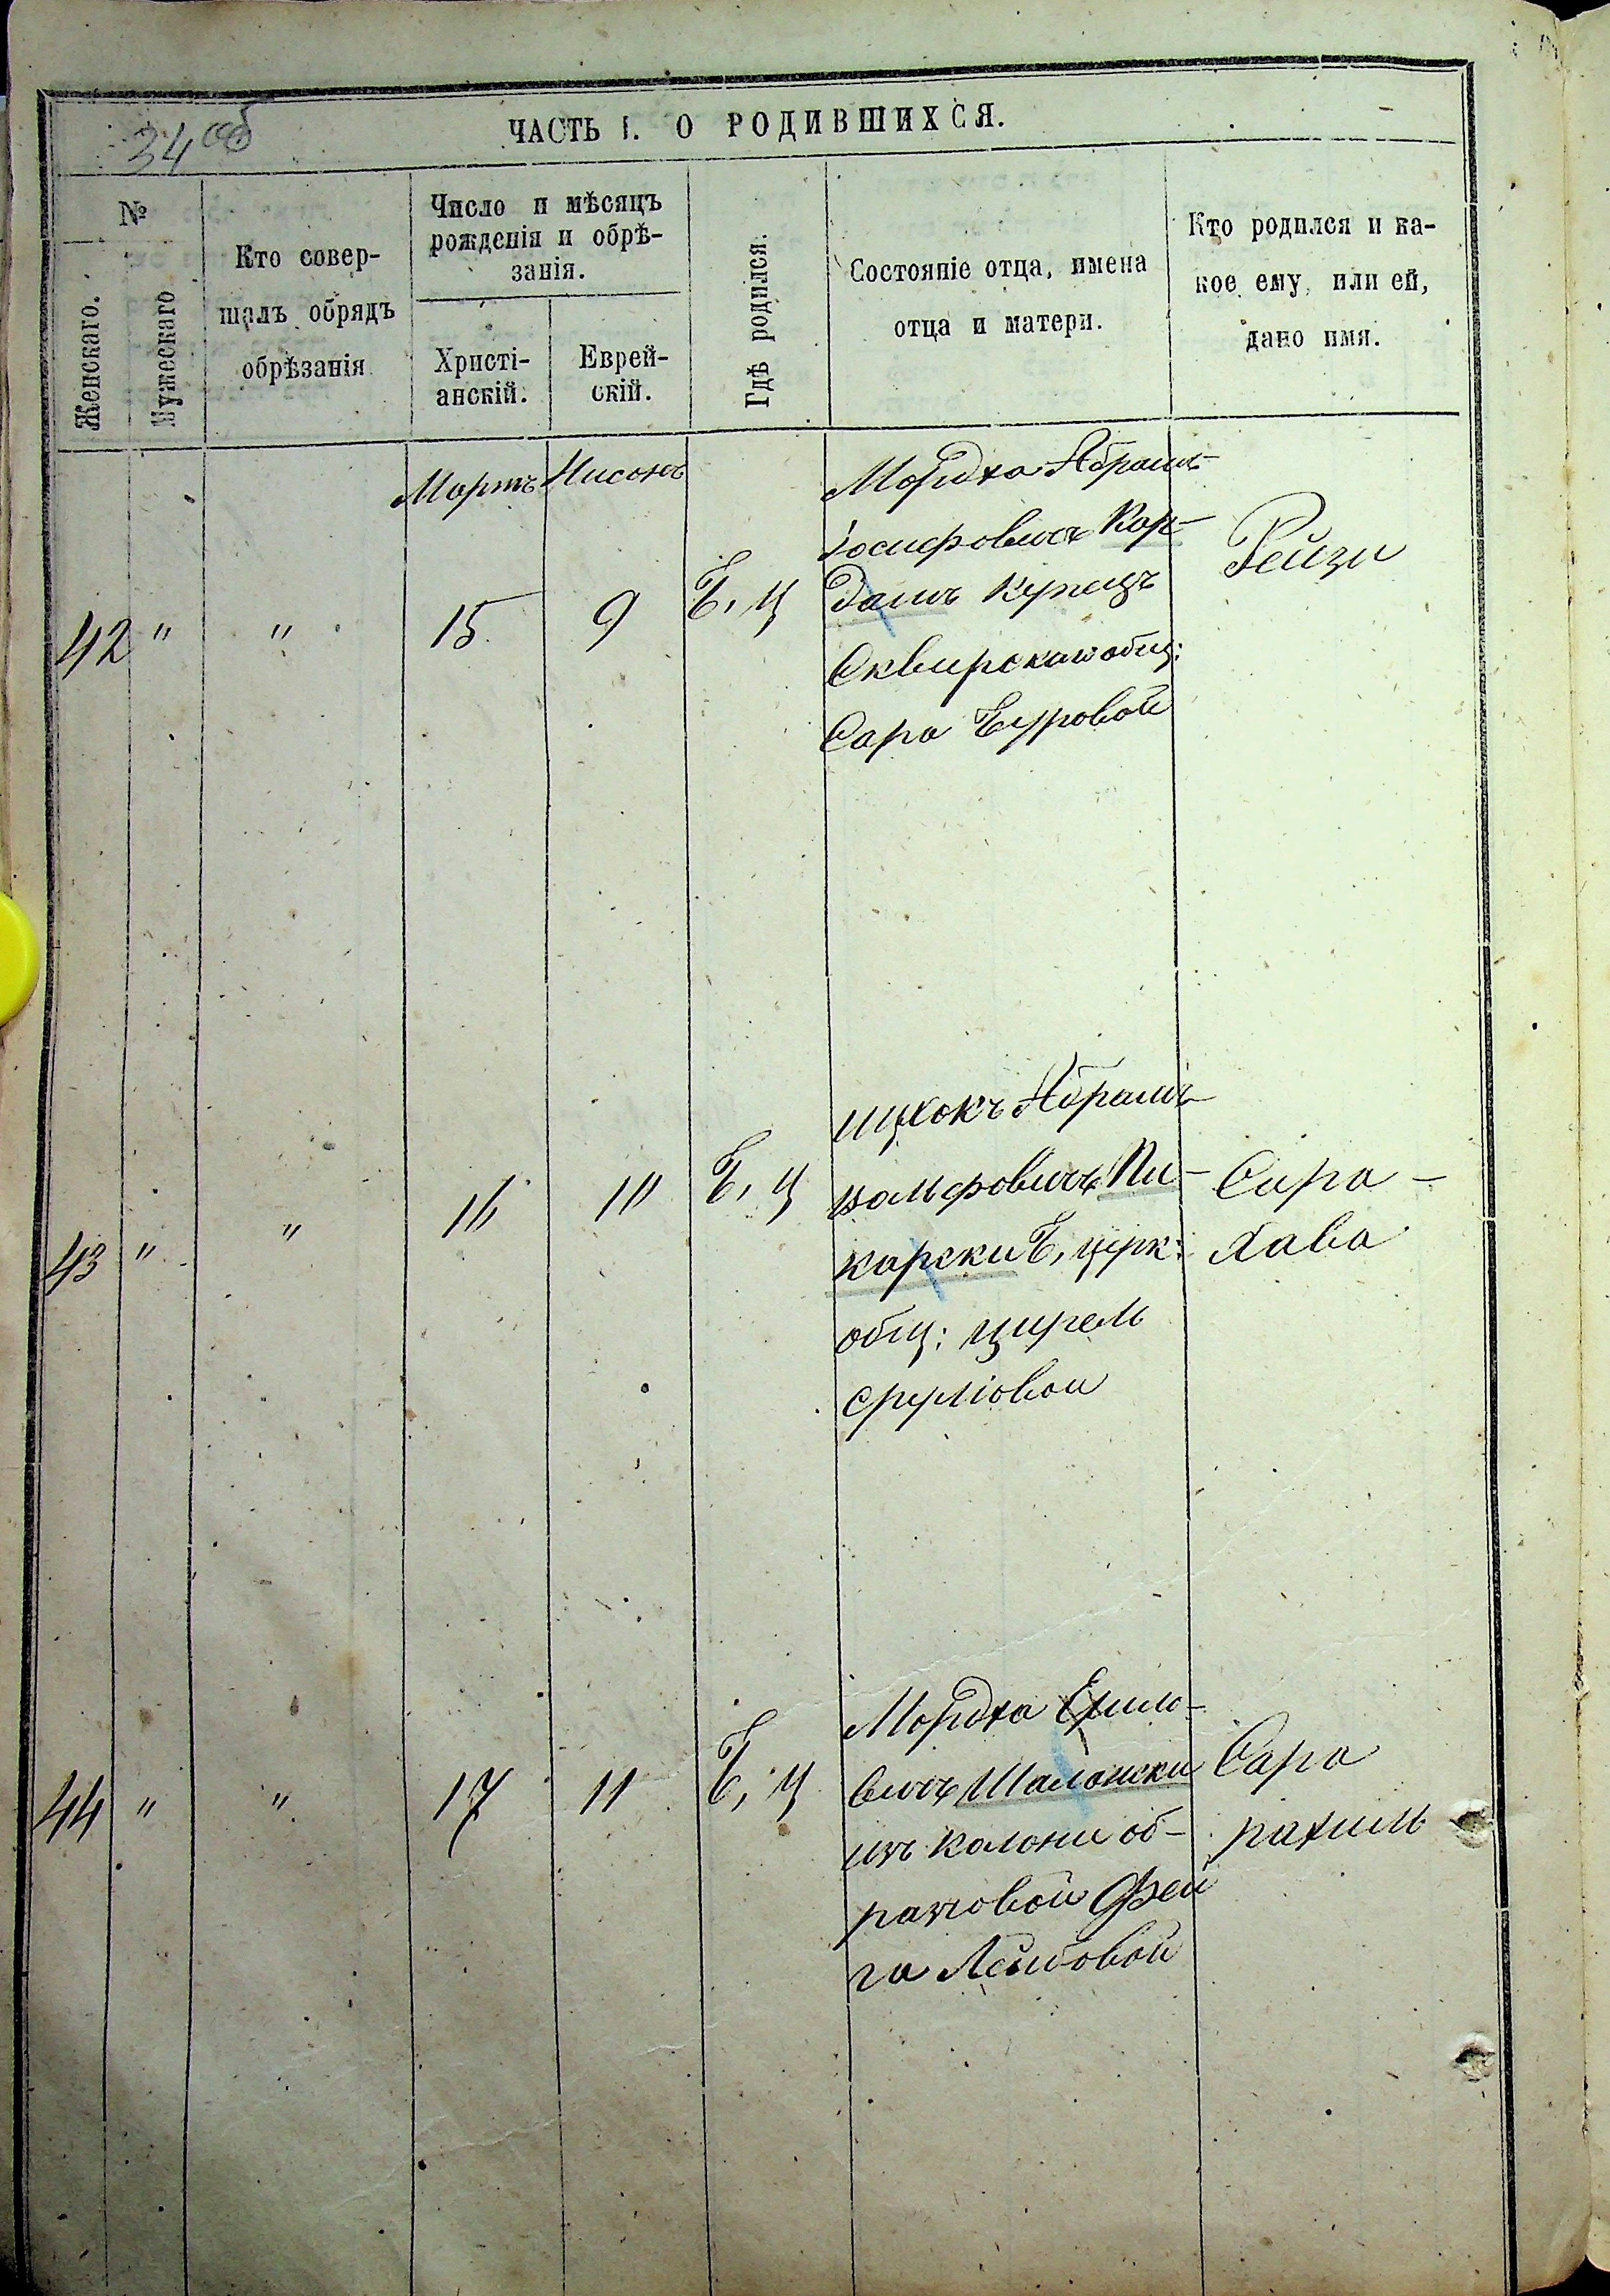 34 об
ЧАСТЬ I. О РОДИВШИХСЯ.
№
Женскаго.
Мужескаго
Кто совер-
шалъ обрядъ
обрѣзанія
Число и мѣсяцъ
рожденія и обрѣ-
занія.
Христі-
анскій.
Еврей-
скій.
Гдѣ родился.
Состояніе отца, имена
отца и матери.
Кто родился и ка-
кое ему, или ей,
дано имя.
Мартъ Нисонъ
42 " " 15 9 Б, ц
Мордха Абрамъ-
Іосифовичъ Кор-
данъ Купецъ
Сквирскаго общ:
Сара
Рейзи
43 " " 16 10 Б, ц
Ицхокъ Абрамъ-
вольфовичъ Пи-
карски Б, церк:
общ: цирель
сруліовои
Сара -
Хава
44 " " 17 11 Б, ц
Мордха
вичъ Шалонски
изъ колони об-
разовой Фей
га Лейбовой
Сара
рахиль